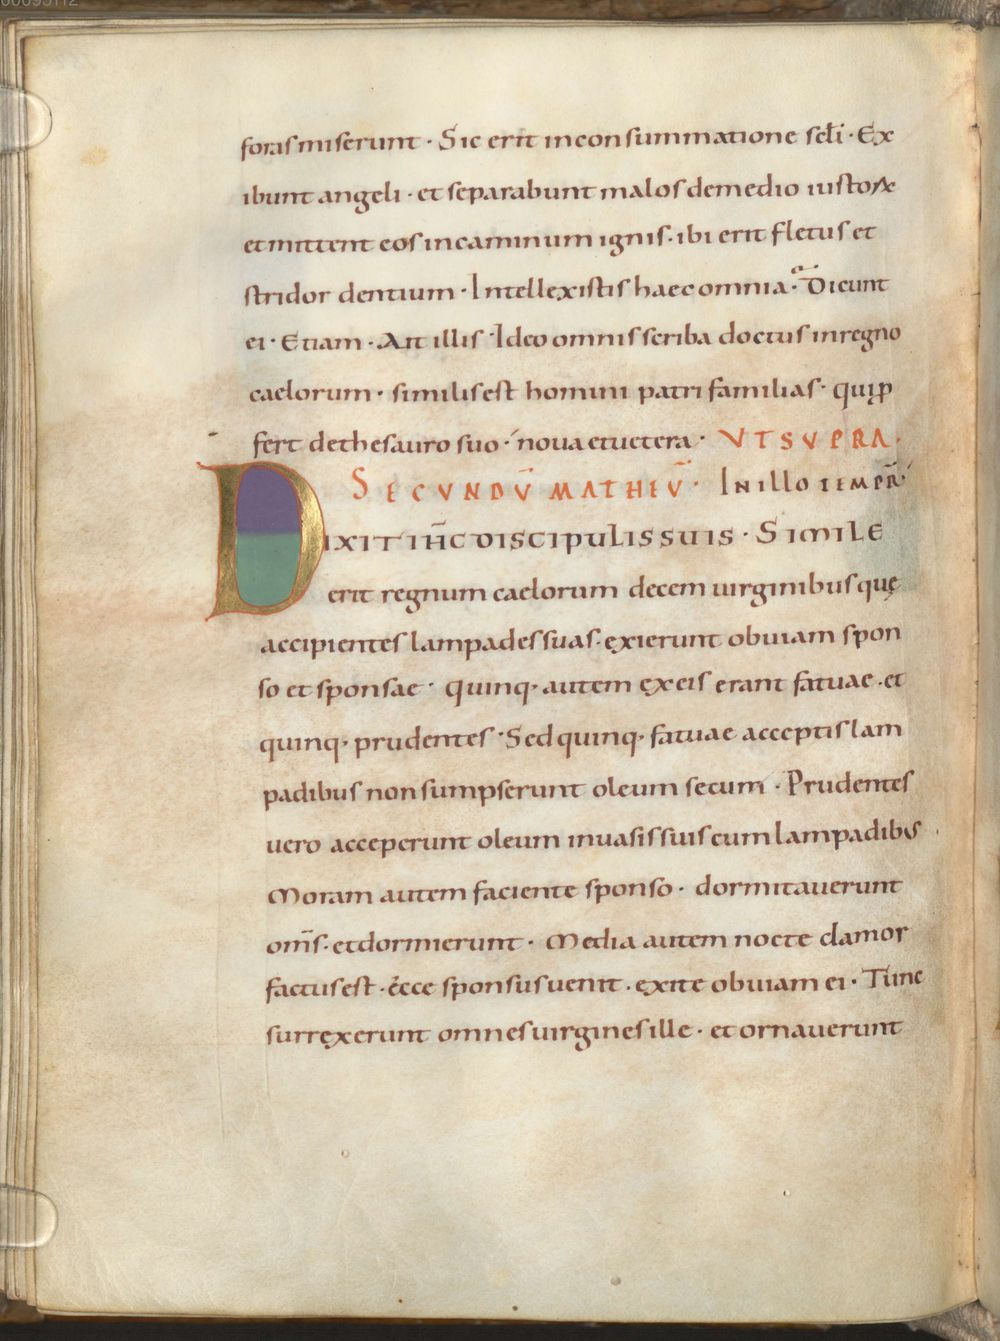 foras miserunt · Sic erit in consummatione scłi · Ex
ibunt angeli · et separabunt malos demedio iustoꝝ
et mittent eos in caminum ignis · ibi erit fletus et
stridor dentium · Intellexistis haec omnia · Dicunt
ei · Etiam · Ait illis · Ideo omnis scriba doctus in regno
caelorum · similis est homini patri familias · qui ꝓ
fert de thesauro suo · nova et vetera · VT SVPRA ·
SECVNDV̄ MATHEV̄ · In illo tempr̄
DIXIT ih̄c discipulis suis · Simile
erit regnum caelorum decem virginibus quę
accipientes lampades suas · exierunt obuiam spon
so et sponsae · quinq· autem ex eis erant fatuae · et
quinq· prudentes · Sed quinq· fatuae acceptis lam
padibus non sumpserunt oleum secum · Prudentes
uero acceperunt oleum in uasis suis cum lampadibus
Moram autem faciente sponso · dormitauerunt
om̄s · et dormierunt · Media autem nocte clamor
factus est · ecce sponsus uenit · exite obuiam ei · Tunc
surrexerunt omnes uirgines ille · et ornauerunt